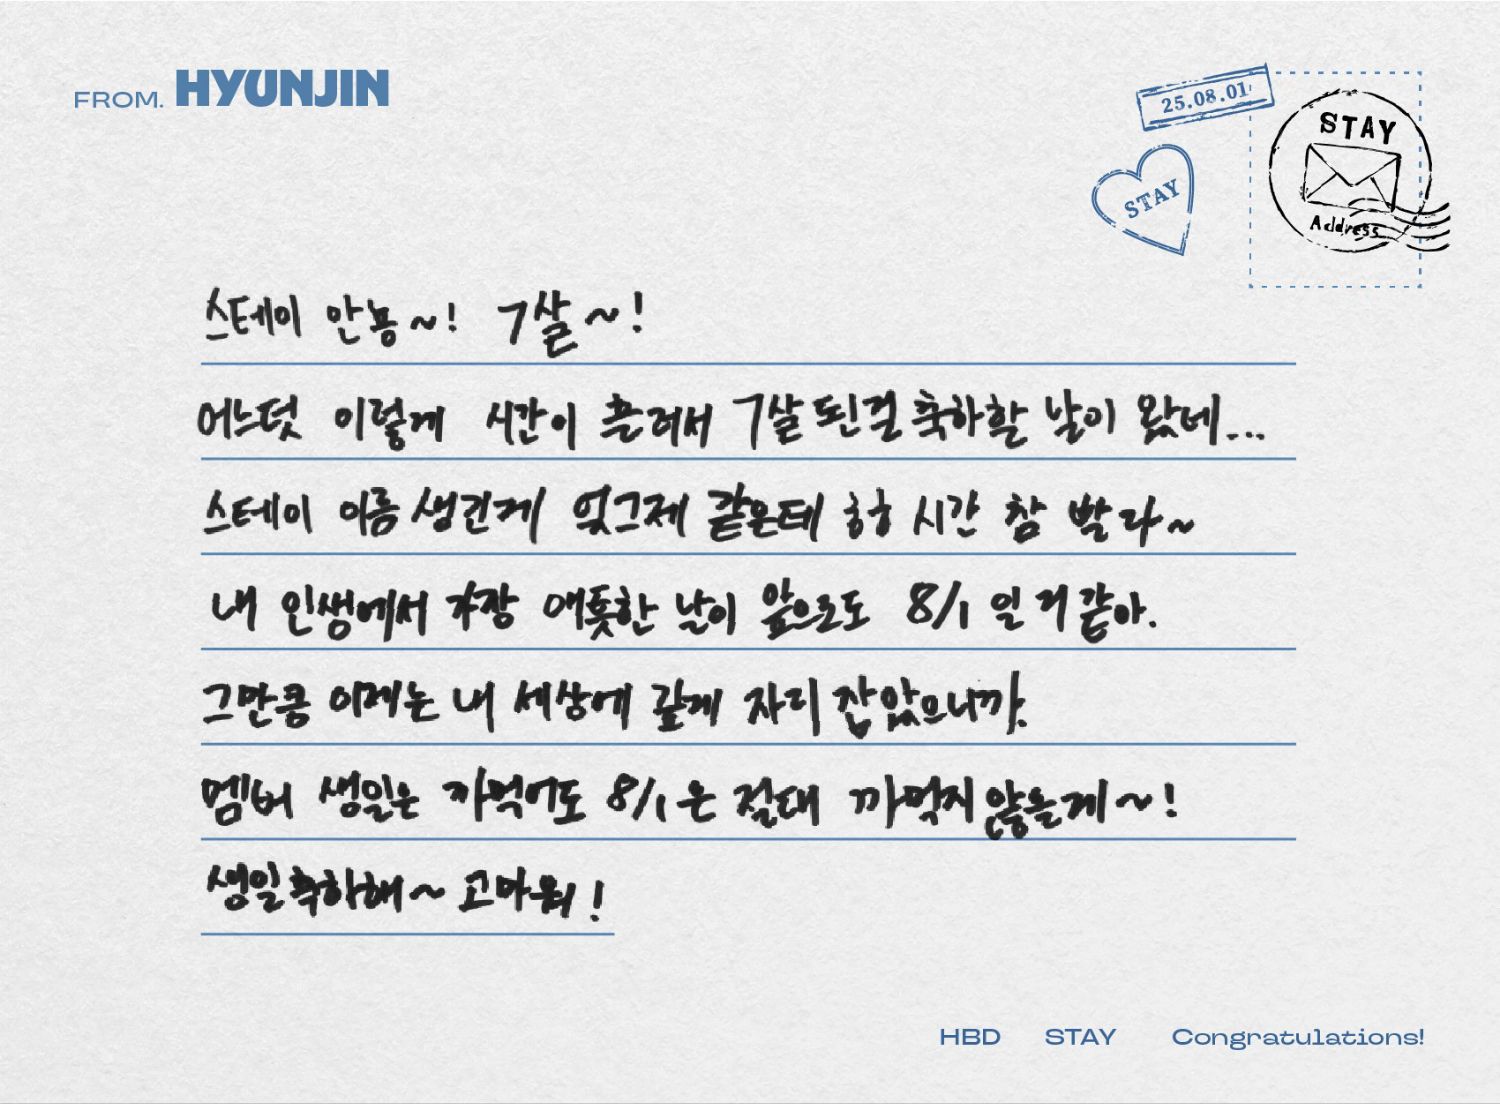 FROM. HYUNJIN
25.08.01
STAY
STAY
Address
스테이 안뇽~! 7살~!
어느덧 이렇게 시간이 흘러서 7살 된걸 축하할 날이 왔네...
스테이 이름 생긴게 엊그제 같은데 하하 시간 참 빨라~
내 인생에서 가장 애틋한 날이 앞으로도 8/1 일 거 같아.
그만큼 이제는 내 세상에 깊게 자리 잡았으니까.
멤버 생일은 까먹어도 8/1은 절대 까먹지 않을게~!
생일 축하해~ 고마워!
HBD STAY Congratulations!